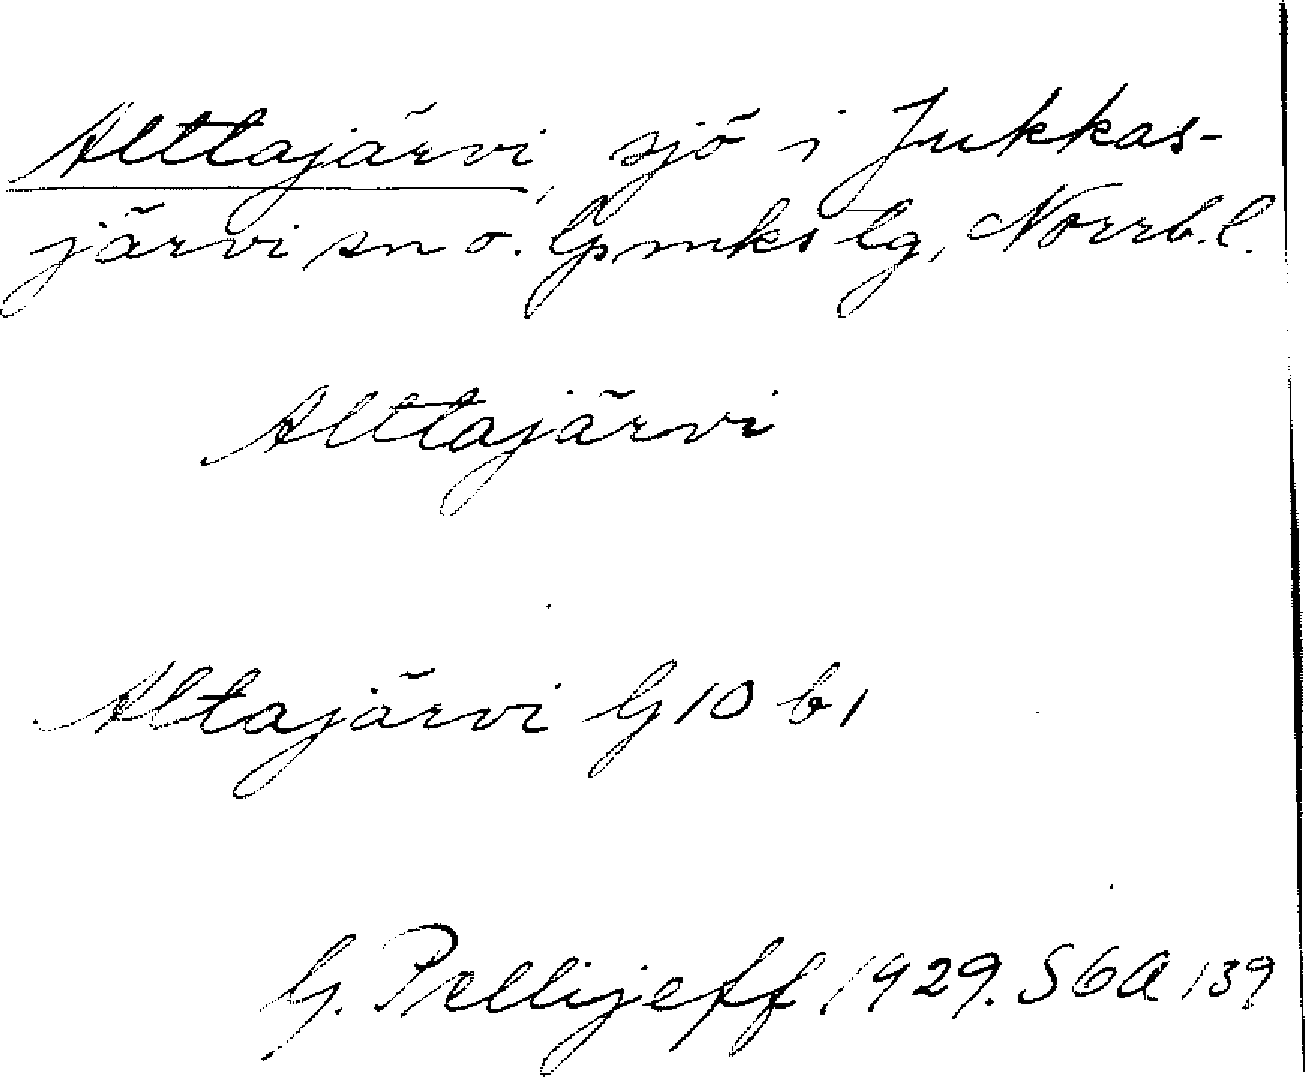 Alttajärvi, sjö i Jukkas-
järvi sn o. lpmkslg, Norrb.l.
Alttajärvi
Altajärvi G10 b1
G. Pellijeff 1929. S6a 139